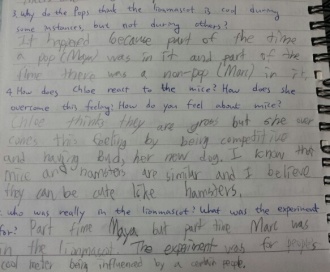 3. Why do the Pops think the lionmascot is cool during
some instances, but not during others?
It happend because part of the time
a pop (Maya) was in it and part of the
time there was a non-pop (Marc) in it.
4. How does Chloe react to the mice? How does she
overcome this feeling? How do you feel about mice?
Chloe thinks they are gross but she over
comes this feeling by being competitive
and having Bud, her new dog. I know that
mice and hamsters are similar and I believe
they can be cute like hamsters.
who was really in the lionmascot? What was the experiment
for? Part time Maya but part time Marc was
in the lionmascot. The experiment was for people's
cool meter being influenced by a certain people.